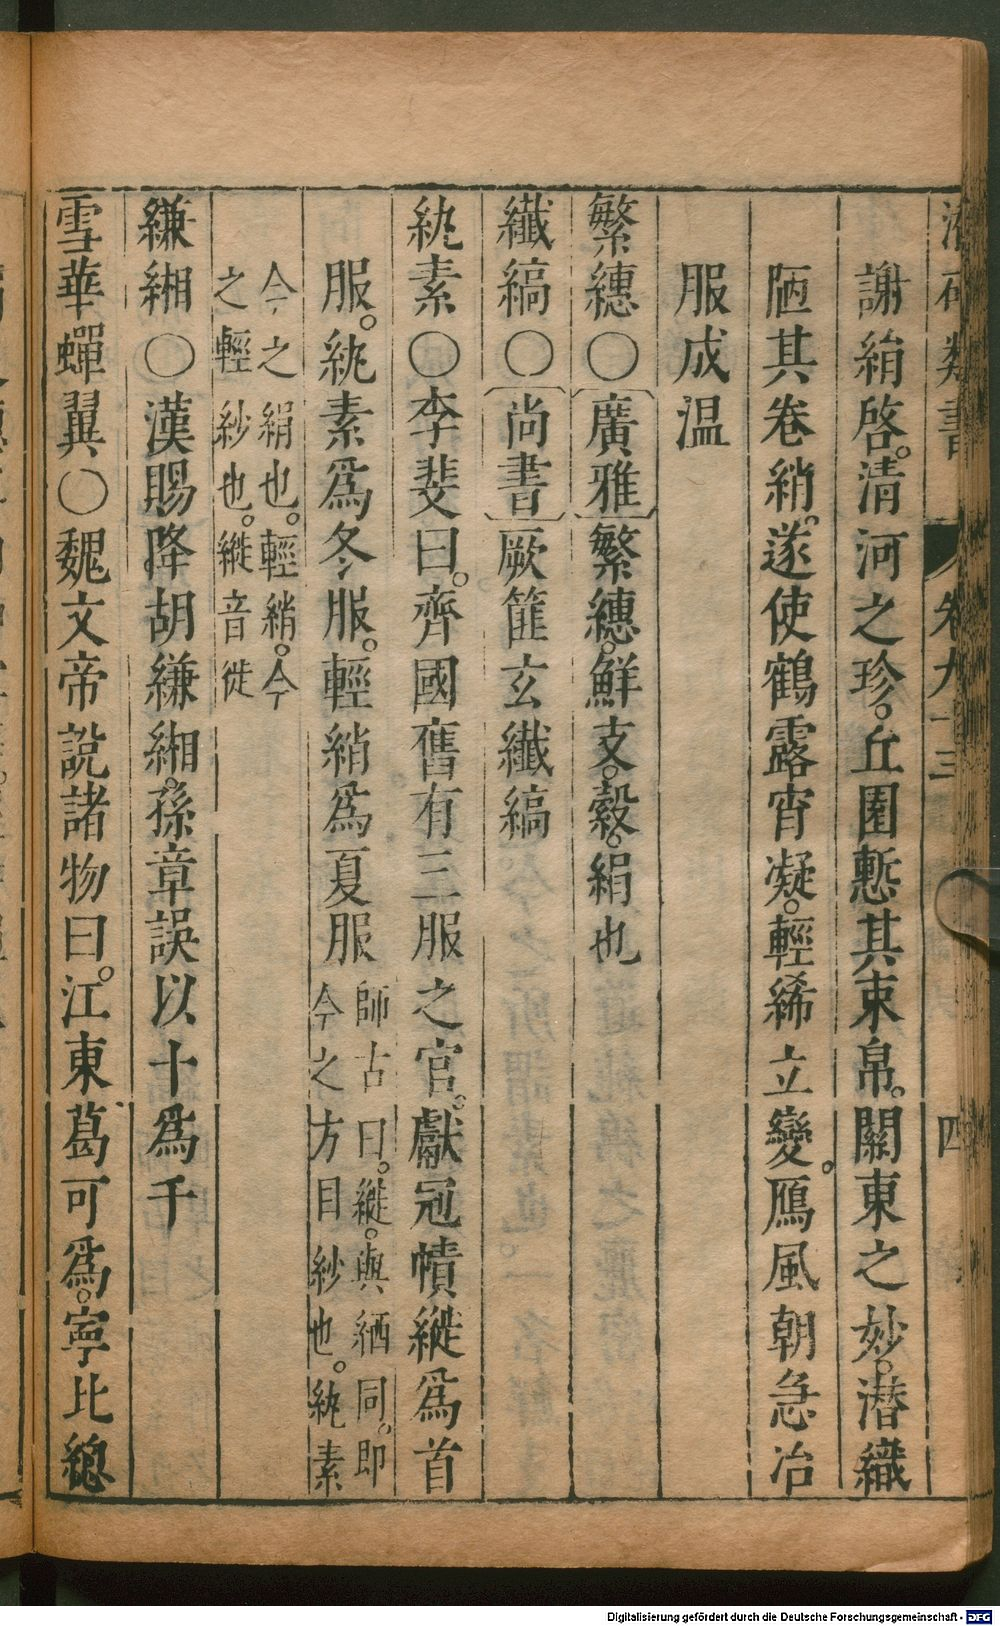 潛確類書 卷九十三 四
謝絹啓。清河之珍。丘園慙其束帛。關東之妙。潛織
陋其卷綃。遂使鶴露宵凝。輕絺立變。鴈風朝急。冶
服成温
繁繐○廣雅繁繐。鮮支。縠。絹也
纖縞○尚書厥篚玄纖縞
紈素○李斐曰。齊國舊有三服之官。獻冠幘縰爲首
服。紈素爲冬服。輕綃爲夏服
師古曰。縰。與纚同。即
今之方目紗也。紈素
今之絹也。輕綃。今
之輕紗也。縰音徙
縑緗○漢賜降胡縑緗。孫章誤以十爲千
雪華蟬翼○魏文帝說諸物曰。江東葛可爲。寧比總
Digitalisierung gefördert durch die Deutsche Forschungsgemeinschaft - DFG